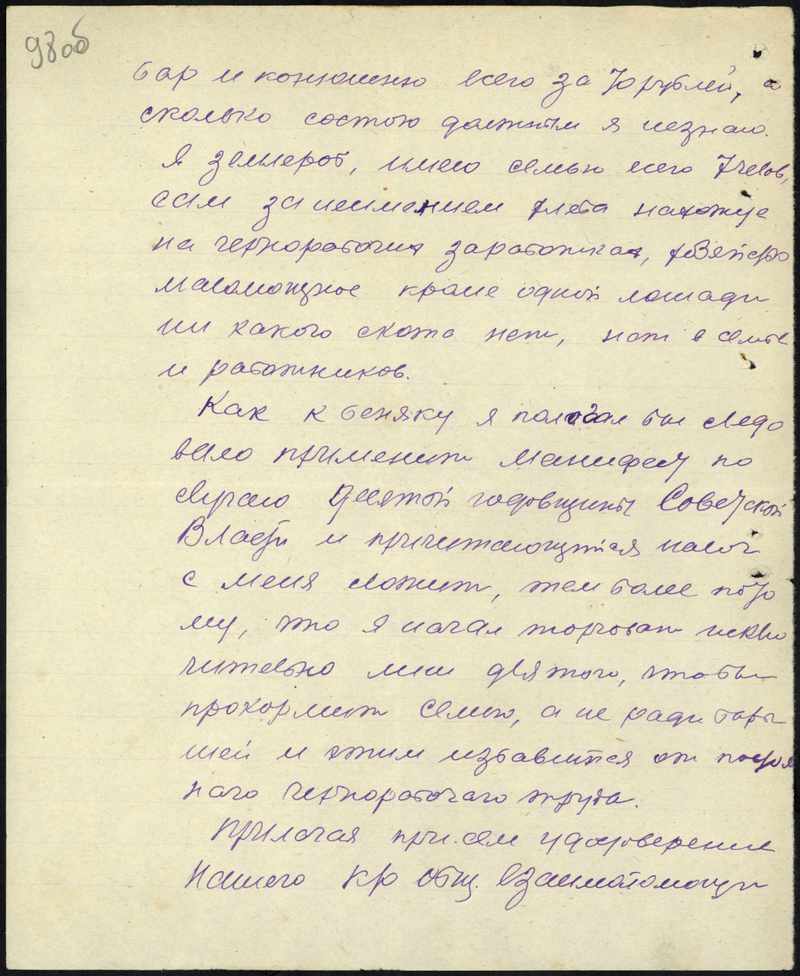 98об
бар и конюшню всего за 70 рублей, а
сколько состою должным я незнаю.
Я землероб, имею семью всего 7 челов,
сам за неимением хлеба нахожус
на чернорабочих заработках,
маломощное кроме одной лошади
ни какого скота нет, нет в семье
и работников.
Как к беняку я полагал бы следо
вало применит манифест по
случаю Десятой годовщины Советской
Власти и причитающийся налог
с меня сложит, тем более пото
му, что я начал торговат исклю
чительно лиш для того, чтобы
прокормит семью, а не ради бары
шей и этим избавится от постоя
наго чернорабочаго труда.
Прилагая при сем удостоверение
нашего кр общ. взаимопомощи